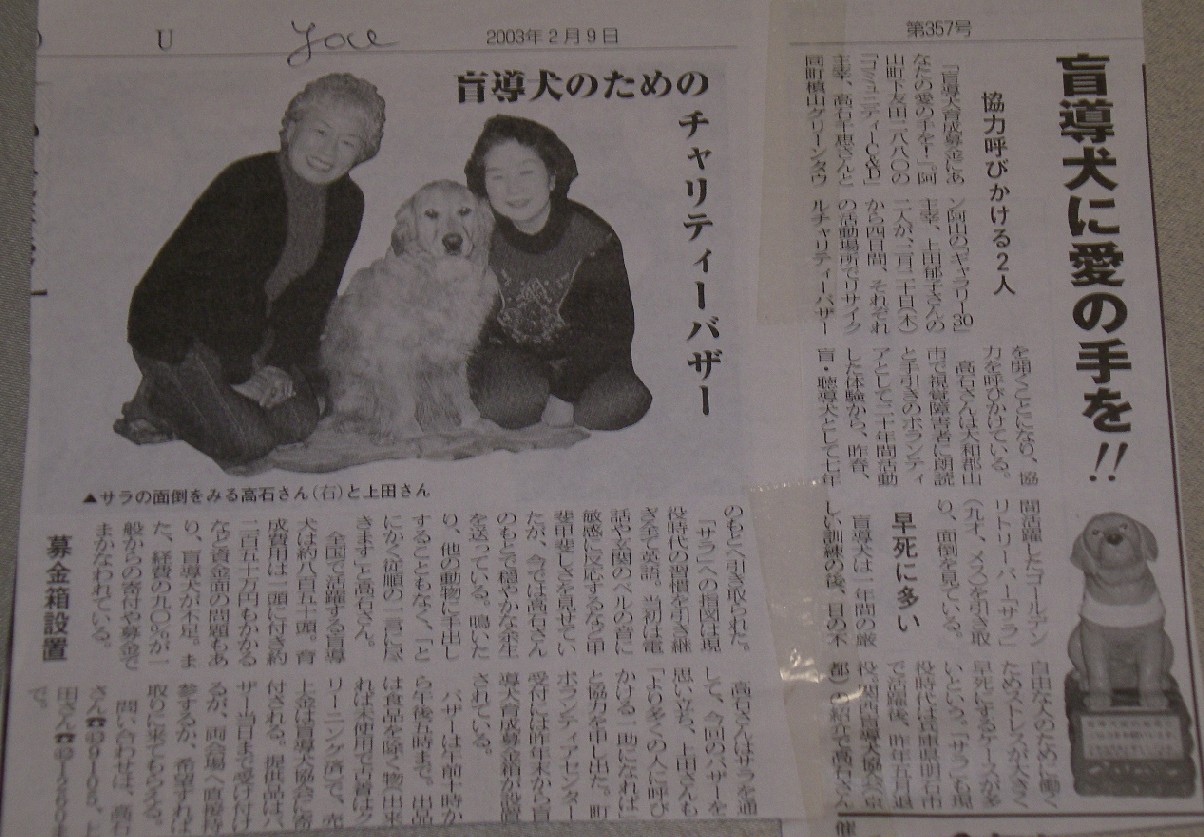 U
You
2003年2月9日
第357号
盲導犬に愛の手を!!
協力呼びかける2人
盲導犬のための
チャリティーバザー
「盲導犬育成募金にあ
なたの愛の手を!」。阿
山町下友田二八八〇の
「コミュニティーC&D」
主宰、高石千恵さんと
同町槙山グリーンタウ
ン阿山の「ギャラリー30」
主宰、上田郁子さんの
二人が、二月二十日(木)
から四日間、それぞれ
の活動場所でリサイク
ルチャリティーバザー
を開くことになり、協
力を呼びかけている。
高石さんは大和郡山
市で視覚障害者に朗読
と手引きのボランティ
アとして二十年間活動
した体験から、昨春、
盲・聴導犬として七年
間活躍したゴールデン
リトリーバー「サラ」
(九才、メス)を引き取
り、面倒を見ている。
早死に多い
盲導犬は一年間の厳
しい訓練の後、目の不
自由な人のために働く
ためストレスが大きく
早死にするケースが多
いという。「サラ」も現
役時代は兵庫県明石市
で活躍後、昨年五月退
役、関西盲導犬協会(京
都)の紹介で高石さん
のもとへ引き取られた。
「サラ」への指図は現
役時代の習慣を引き継
ぎ全て英語。当初は電
話や玄関のベルの音に
敏感に反応するなど甲
斐甲斐しさを見せてい
たが、今では高石さん
のもとで穏やかな余生
を送っている。鳴いた
り、他の動物に手出し
することもなく、「と
にかく従順の一言に尽
きます」と高石さん。
全国で活躍する盲導
犬は約八百五十頭。育
成費用は一頭に付き約
二百五十万円もかかる
など資金面の問題もあ
り、盲導犬が不足。ま
た、経費の九〇%が一
般からの寄付や募金で
まかなわれている。
募金箱設置
高石さんはサラを通
して、今回のバザーを
思い立ち、上田さんも
「より多くの人に呼び
かける一助になれば」
と協力を申し出た。町
ボランティアセンター
受付には昨年末から盲
導犬育成募金箱が設置
されている。
バザーは午前十時か
ら午後五時まで。出品
は食品を除く物(出来
れば未使用で古着はク
リーニング済)で、売
上金は盲導犬協会に寄
付される。提供品はバ
ザー当日まで受け付け
るが、両会場へ直接持
参するか、希望すれば
取りに来てもらえる。
問い合わせは、高石
さん
田さん
で。
▲サラの面倒をみる高石さん(右)と上田さん
催